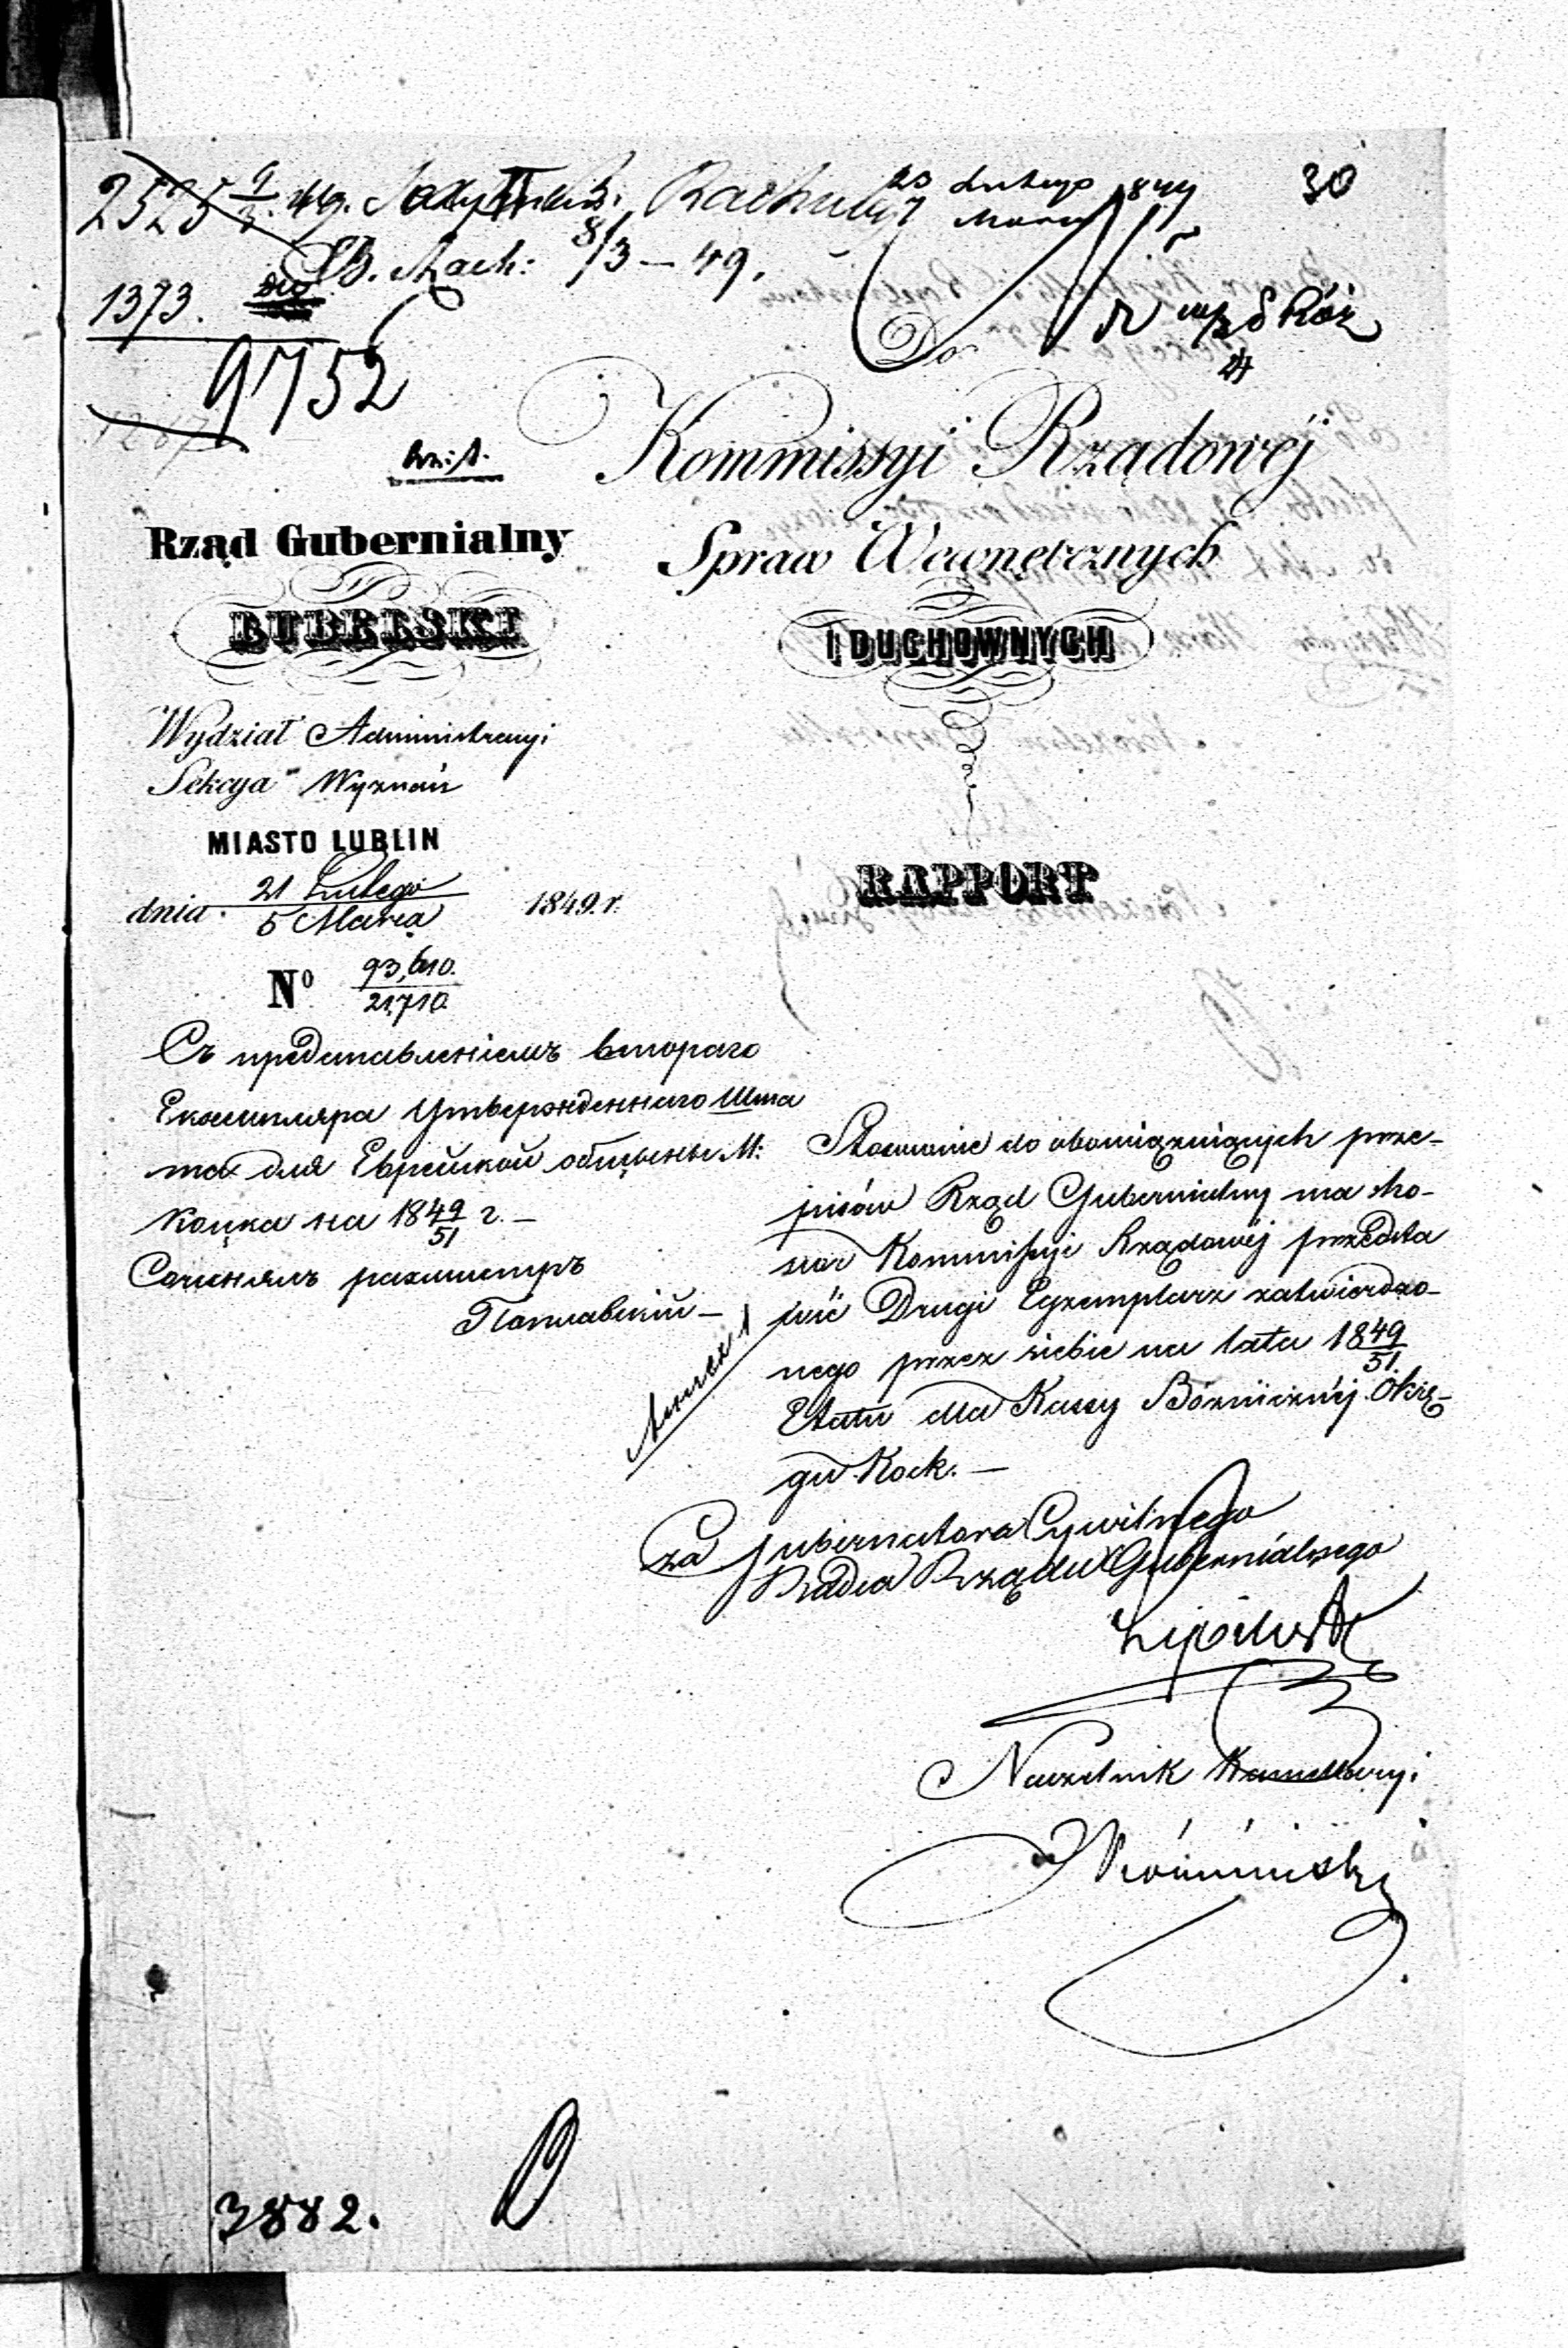 30
2525 9/3 49. Rachuby
23 Lutego
Marca 1849
B. Rach: 8/3 – 49.
1373.
9752
Do
Kommissyi Rządowéj
Spraw Wewnętrznych
I DUCHOWNYCH
RAPPORT
Rząd Gubernialny
LUBELSKI
Wydział Administracyi
Sekcya Wyznań
MIASTO LUBLIN
dnia 21 Lutego / 5 Marca 1849. r.
No 93,610. / 21,710.
Съ представленіемъ втораго
Екземпляра Утвержденнаго Шта
та для Еврейской общины М:
Коцка на 18 49/51 г. –
Сочинялъ
Поплавскій –
Annex 1
Stosownie do obowiązujących prze-
pisów Rząd Gubernialny ma ho-
nor Kommissyi Rządowéj przedsta
wić Drugi Egzemplarz zatwierdzo-
nego przez siebie na lata 18 49/51.
Etatu dla Kassy Bóżniczńéj Okrę-
gu Kock. –
Za Gubernatora Cywilnego
Radca Rządu Gubernialnego
Naczelnik Kancellaryi
3882.